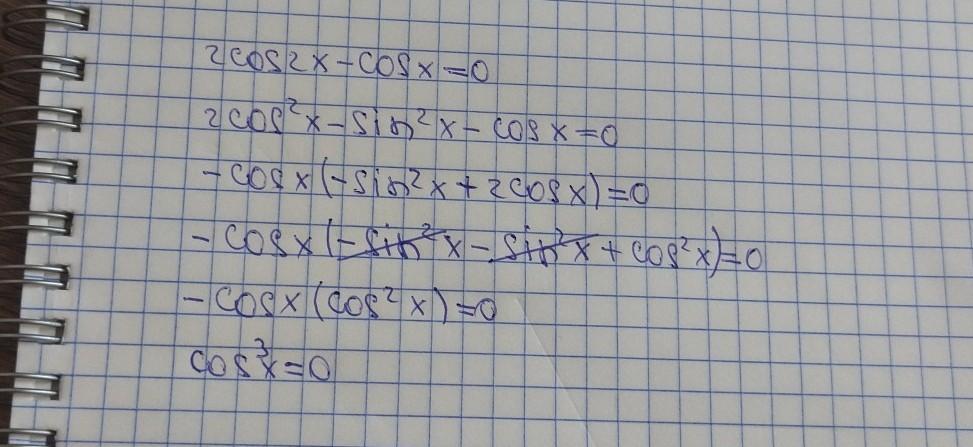 2cos2x-cosx=0
2cos²x-sin²x-cosx=0
-cosx(-sin²x+2cosx)=0
-cosx(-sin²x-sin²x+cos²x)=0
-cosx(cos²x)=0
cos³x=0